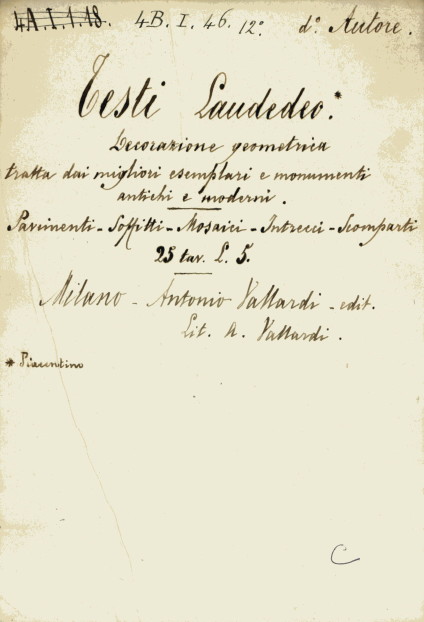 4A.I.1.18. 4B.I.46. 12° d° Autore.
Testi Laudedeo.*
Decorazione geometrica
tratta dai migliori esemplari e monumenti
antichi e moderni.
Pavimenti - Soffitti - Mosaici - Intrecci - Scomparti
25 tav. L. 5.
Milano - Antonio Vallardi - edit.
Lit. A. Vallardi.
* Piacentino
C